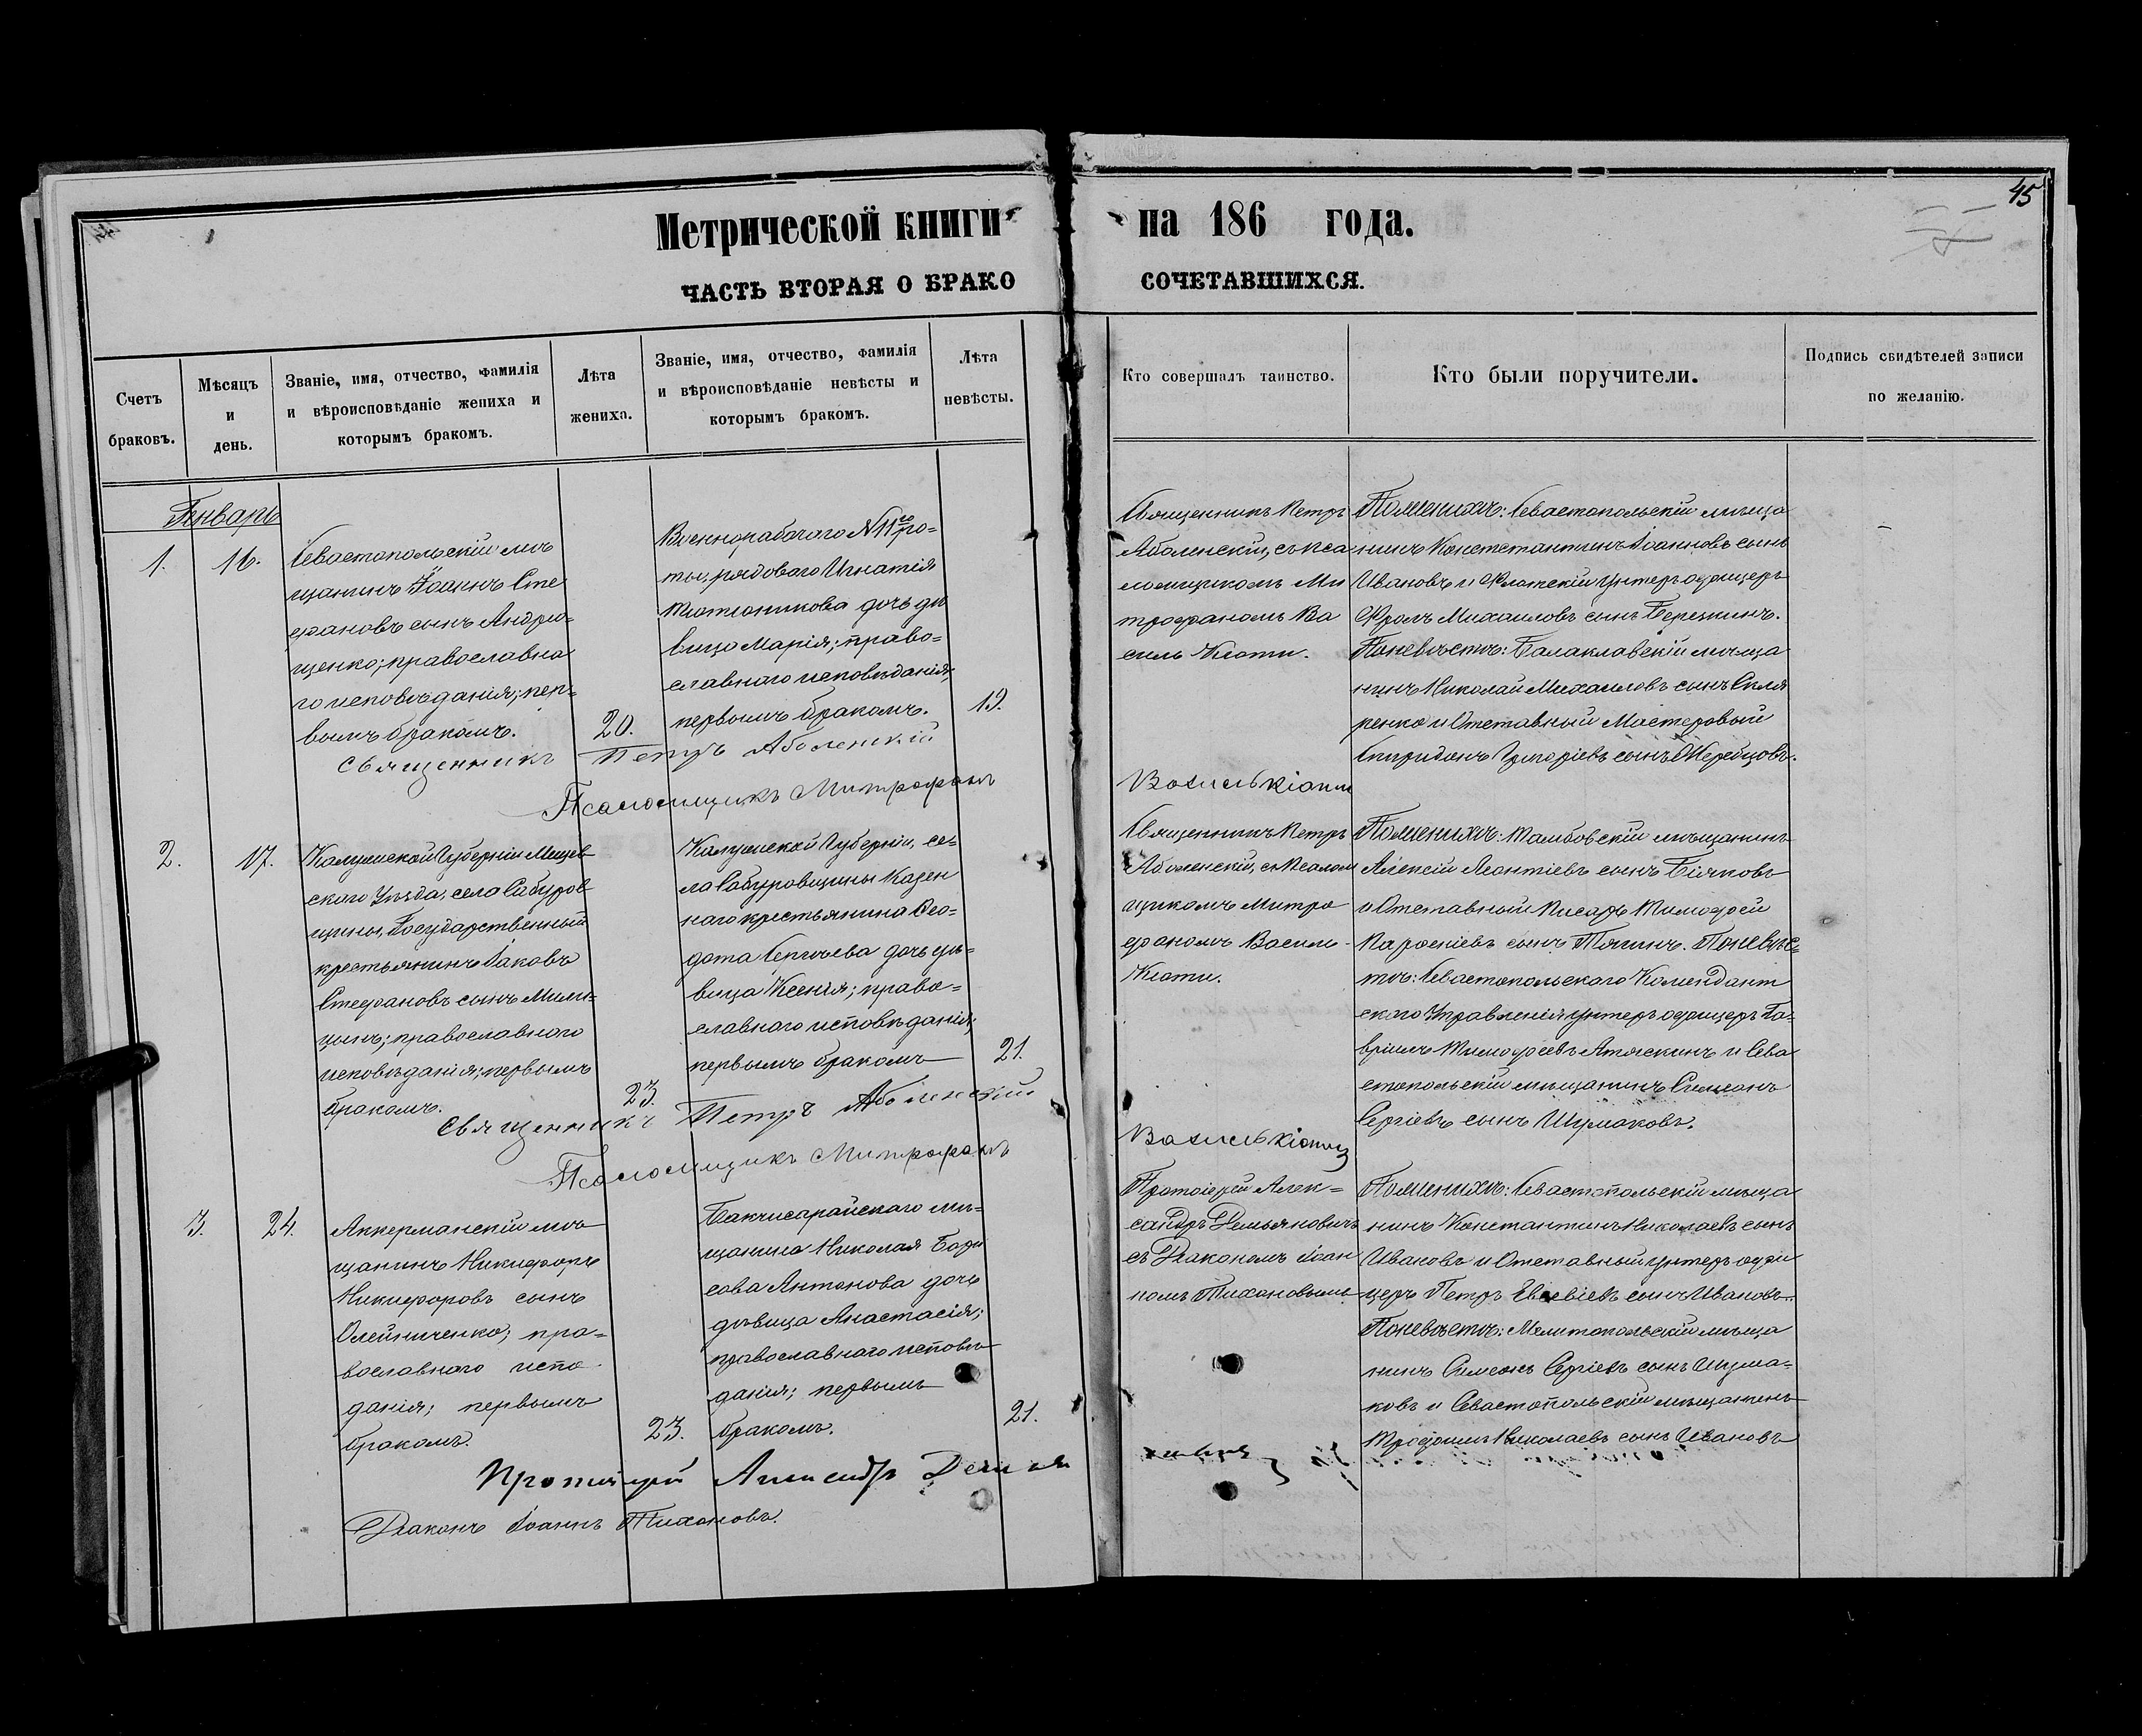 45
Метрической книги на 186 года.
ЧАСТЬ ВТОРАЯ О БРАКО СОЧЕТАВШИХСЯ.
Счетъ
браковъ.
Мѣсяцъ
и
день.
Званіе, имя, отчество, фамилія
и вѣроисповѣданіе жениха и
которымъ бракомъ.
Лѣта
жениха.
Званіе, имя, отчество, фамилія
и вѣроисповѣданіе невѣсты и
которымъ бракомъ.
Лѣта
невѣсты.
Кто совершалъ таинство.
Кто были поручители.
Подпись свидѣтелей записи
по желанію.
Генварь
1.
16.
Севастопольскій мѣ
щанинъ Іоаннъ Сте
фановъ сынъ Андрю-
щенко; православна
го исповѣданія; пер-
вымъ бракомъ.
20.
Военнорабочаго №11го ро-
ты, рядоваго Игнатія
Тютюникова дочь дѣ
вица Марія; право-
славнаго исповѣданія;
первымъ бракомъ.
19.
Священникъ Петръ
Аболенскій, съ Пса
ломщикомъ Ми
трофаномъ Ва
силь Кіоти.
По женихѣ: Севастопольскій мѣща
нинъ Константинъ Іоанновъ сынъ
Ивановъ и Флотскій унтеръ офицеръ
Фролъ Михаиловъ сынъ Березкинъ.
По невѣстѣ: Балаклавскій мѣща
нинъ Николай Михаиловъ сынъ Скля
ренко и Отставный Мастеровый
Спиридонъ Григоріевъ сынъ Жеребцовъ.
Священникъ Петръ Аболенскій
Псаломщикъ Митрофанъ Василькіоти
2.
17.
Калужской Губерніи Мещев
скаго Уѣзда, села Сабуров
щины, Государственный
крестьянинъ Іаковъ
Стефановъ сынъ Мили-
цынъ; православнаго
исповѣданія; первымъ
бракомъ.
23.
Калужской Губерніи, се-
ла Сабуровщины Казен
наго крестьянина Фео-
дота Сергѣева дочь дѣ-
вица Ксенія; право-
славнаго исповѣданія;
первымъ бракомъ
21.
Священникъ Петръ
Аболенскій, съ Псалом
щикомъ Митро
фаномъ Василь-
Кіоти.
По женихѣ: Тамбовскій мѣщанинъ
Алексій Леонтіевъ сынъ Бѣляковъ
и Отставный Писарь Тимофей
Парфеніевъ сынъ Тонинъ. По невѣс-
тѣ: Севастопольскаго Комендант
скаго Управленія унтеръ офицеръ Га-
вріилъ Тимофеевъ Атяскинъ и Сева
стопольскій мѣщанинъ Симеонъ
Сергіевъ сынъ Шумаковъ.
Священникъ Петръ Аболенскій
Псаломщикъ Митрофанъ Василькіоти
3.
24.
Аккерманскій мѣ
щанинъ Никифоръ
Никифоровъ сынъ
Олейниченко; пра-
вославнаго испо
данія; первымъ
бракомъ.
23.
Бакчисарайскаго мѣ-
щанина Николая
Антонова дочь
дѣвица Анастасія;
православнаго исповѣ
данія; первымъ
бракомъ.
21.
Протоіерей Алек-
сандръ Демьяновичъ
съ Діакономъ Іоан
номъ Тихановымъ
По женихѣ: Севастопольскій мѣща
нинъ Константинъ Николаевъ сынъ
Ивановъ и Отставный унтеръ офи
церъ Петръ Евсевіевъ сынъ Ивановъ.
По невѣстѣ: Мелитопольскій мѣща
нинъ Симеонъ Сергіевъ сынъ Шума-
ковъ и Севастопольскій мѣщанинъ
Трофимъ Николаевъ сынъ Ивановъ
Протоіерей Александръ
Діаконъ Іоаннъ Тихановъ.